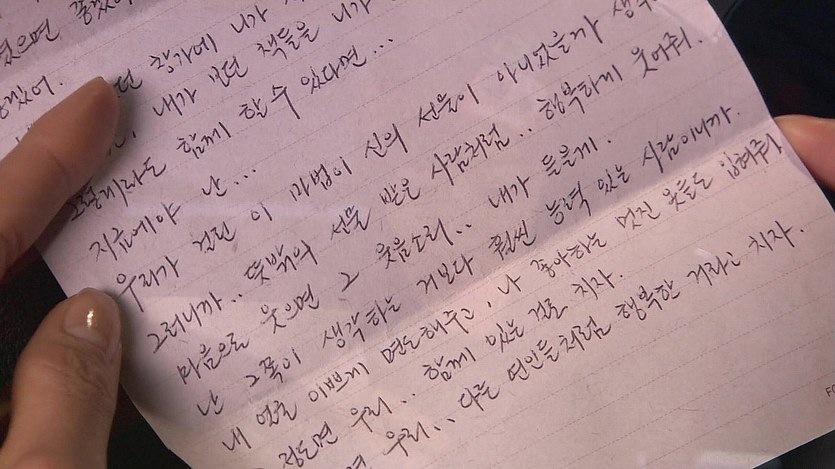 었으면 좋겠어
좋겠어. 던 창가에 네가
내가 보던 책들을 네가
그렇게라도 함께 할 수 있다면...
지금에야 난... 
우리가 걸린 이 마법이 신의 선물이 아니었을까 생각
그러니까.. 뜻밖의 선물 받은 사람처럼.. 행복하게 웃어줘.
마음으로 웃으면 그 웃음소리.. 내가 들을게.
난 그쪽이 생각하는 거보다 훨씬 능력 있는 사람이니까.
내 얼굴 이쁘게 면도해주고, 나 좋아하는 멋진 옷들도 입혀줘
정도면 우리.. 함께 있는 걸로 치자.
면 우리.. 다른 연인들처럼 행복한 거라고 치자.